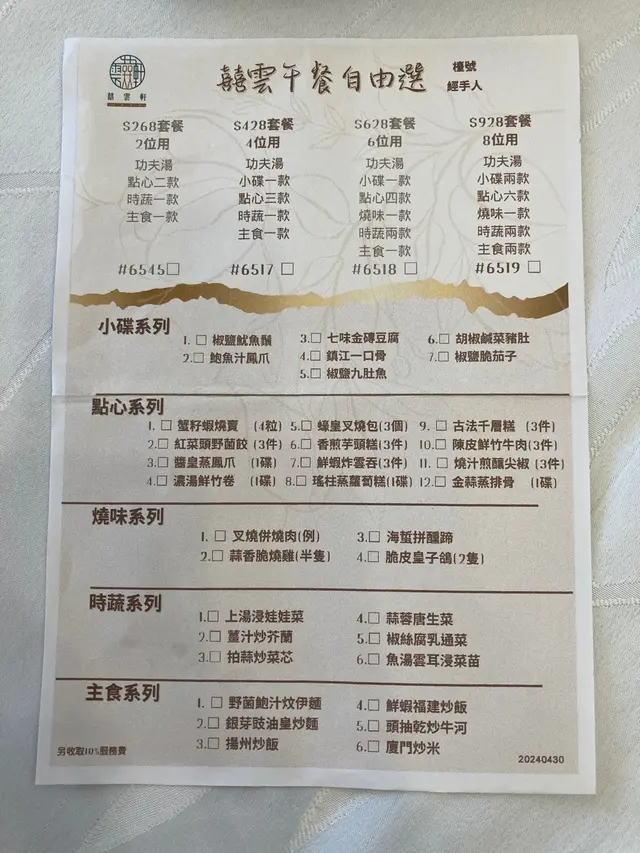 囍雲軒
囍雲午餐自由選
檯號
經手人
S268套餐
2位用
功夫湯
點心二款
時蔬一款
主食一款
#6545□
S428套餐
4位用
功夫湯
小碟一款
點心三款
時蔬一款
主食一款
#6517 □
S628套餐
6位用
功夫湯
小碟一款
點心四款
燒味一款
時蔬兩款
主食一款
#6518 □
S928套餐
8位用
功夫湯
小碟兩款
點心六款
燒味一款
時蔬兩款
主食兩款
#6519 □
小碟系列
1. □ 椒鹽魷魚鬚
2.□ 鮑魚汁鳳爪
3.□ 七味金磚豆腐
4.□ 鎮江一口骨
5.□ 椒鹽九肚魚
6.□ 胡椒鹹菜豬肚
7.□ 椒鹽脆茄子
點心系列
1. □ 蟹籽蝦燒賣 (4粒)
2.□ 紅菜頭野菌餃 (3件)
3.□ 醬皇蒸鳳爪 (1碟)
4.□ 濃湯鮮竹卷 (1碟)
5.□ 蠔皇叉燒包(3個)
6.□ 香煎芋頭糕(3件)
7.□ 鮮蝦炸雲吞(3件)
8.□ 瑤柱蒸蘿蔔糕(1碟)
9. □ 古法千層糕 (3件)
10.□ 陳皮鮮竹牛肉(3件)
11. □ 燒汁煎釀尖椒 (3件)
12.□ 金蒜蒸排骨 (1碟)
燒味系列
1. □ 叉燒併燒肉(例)
2.□ 蒜香脆燒雞(半隻)
3.□ 海蜇拼醺蹄
4.□ 脆皮皇子鴿(2隻)
時蔬系列
1.□ 上湯浸娃娃菜
2.□ 薑汁炒芥蘭
3.□ 拍蒜炒菜芯
4.□ 蒜蓉唐生菜
5.□ 椒絲腐乳通菜
6.□ 魚湯雲耳浸菜苗
主食系列
1. □ 野菌鮑汁炆伊麵
2.□ 銀芽豉油皇炒麵
3.□ 揚州炒飯
4.□ 鮮蝦福建炒飯
5.□ 頭抽乾炒牛河
6.□ 廈門炒米
另收取10%服務費
20240430